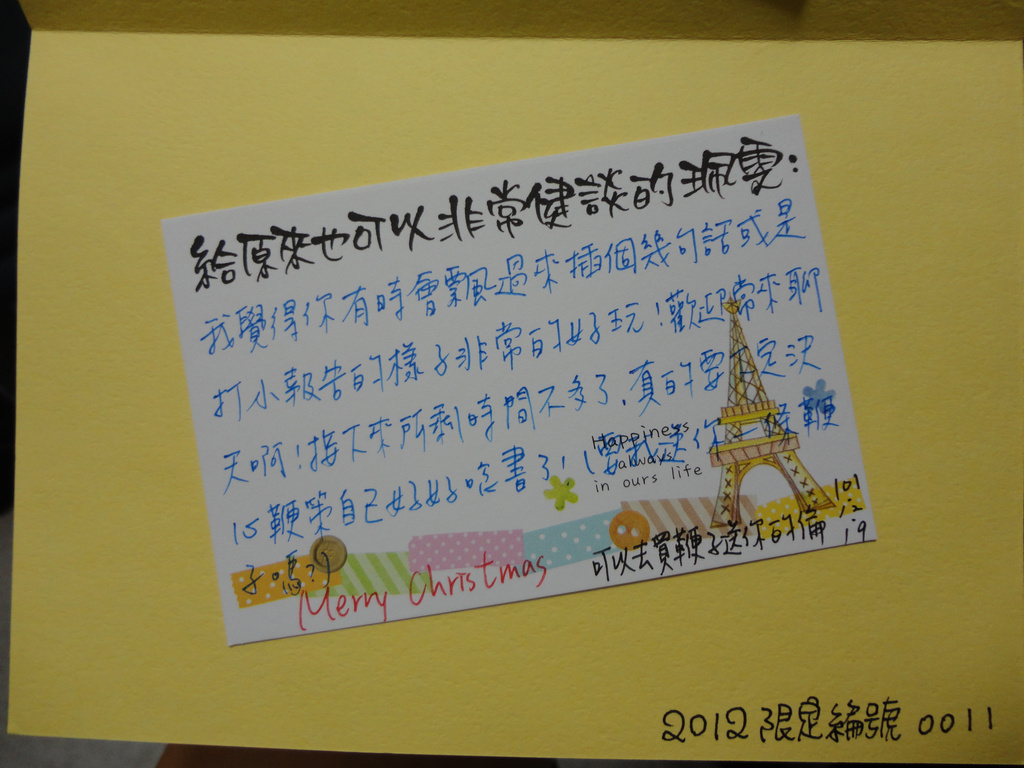 給原來也可以非常健談的珮雯:
我覺得你有時會飄過來插個幾句話或是
打小報告的樣子非常的好玩!歡迎常來聊
天啊!接下來所剩時間不多了,真的要下定決
心鞭策自己好好唸書了!(要我送你一條鞭
子嗎?)
Happiness
always
in ours life
Merry Christmas
可以去買鞭子送你的倫
101
12
19
2012限定編號 0011